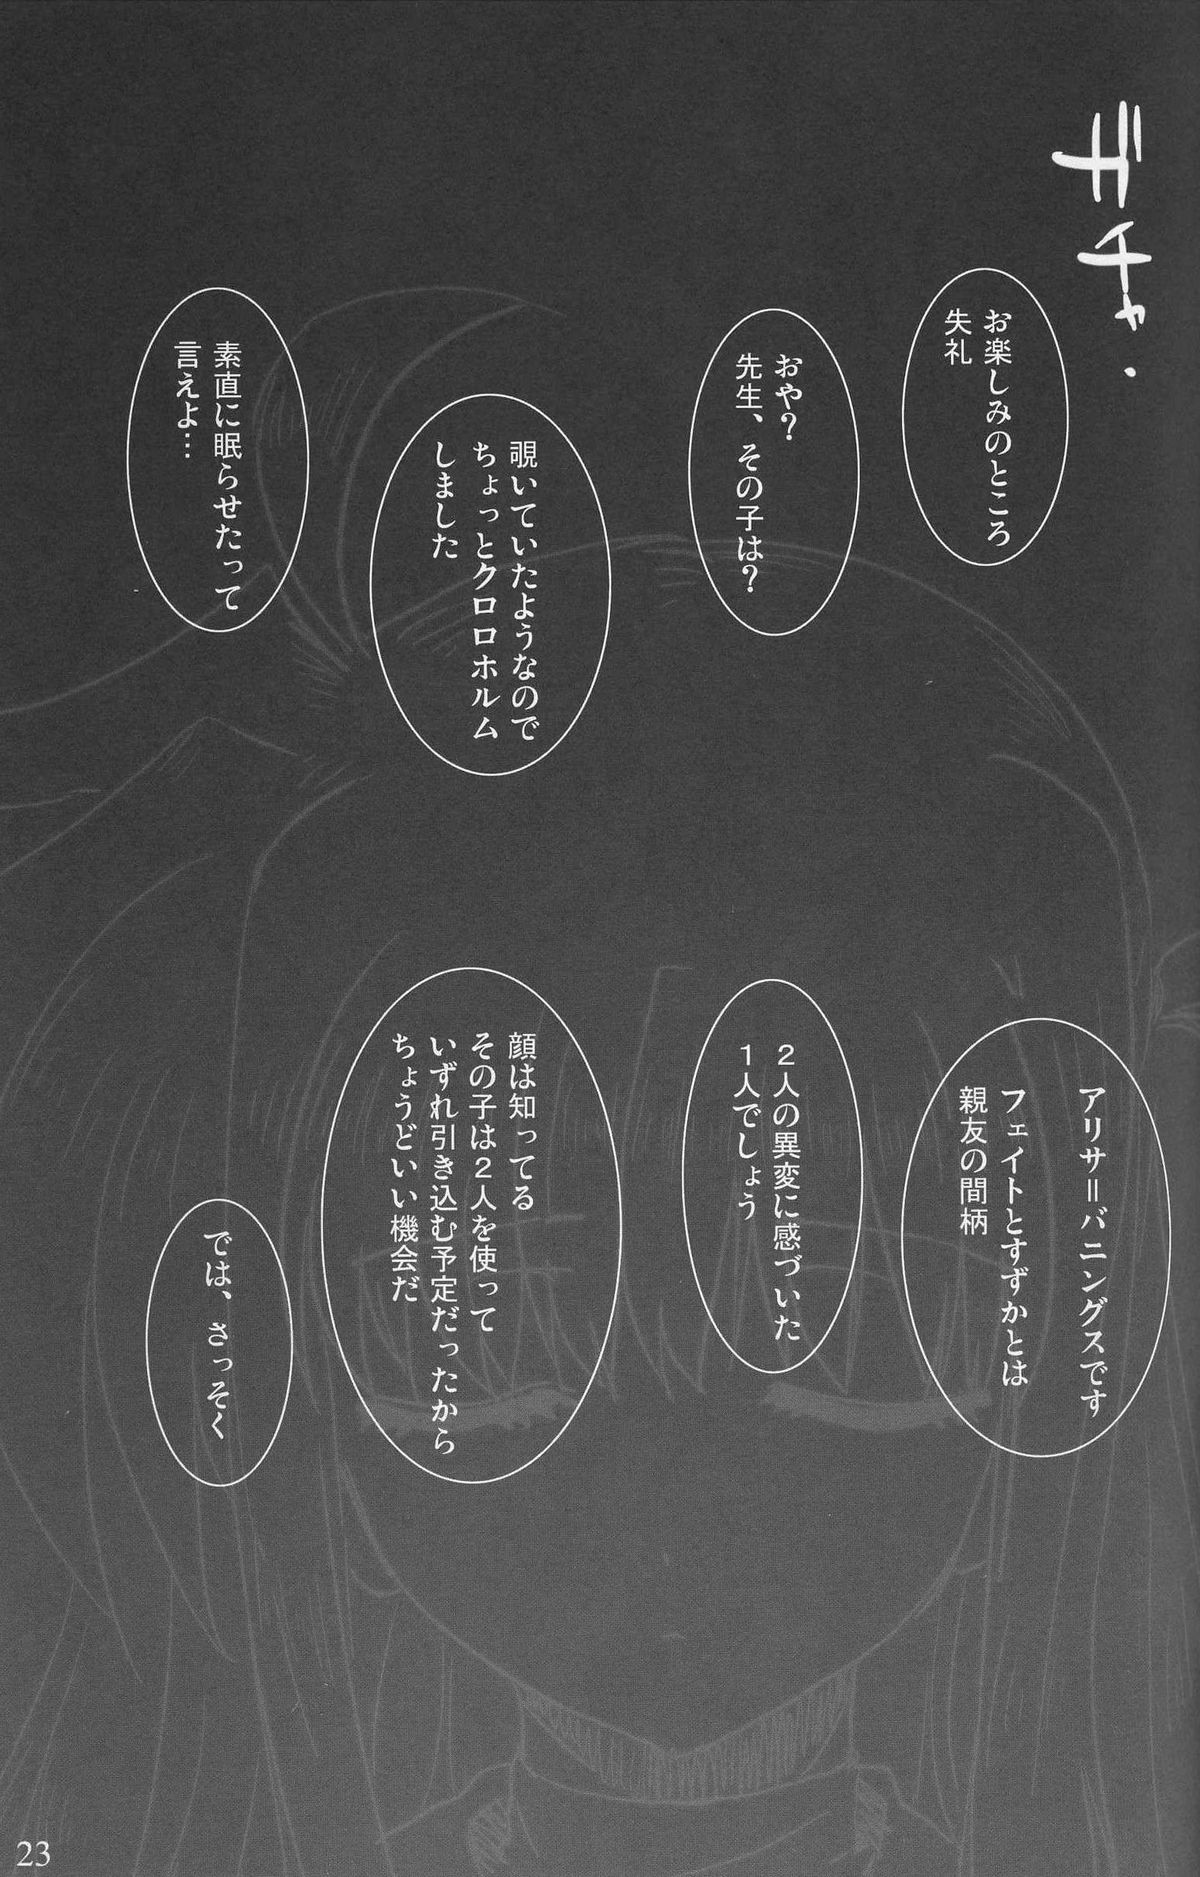 ガチャ・
お楽しみのところ
失礼
おや?
先生、その子は?
覗いていたようなので
ちょっとクロロホルム
しました
素直に眠らせたって
言えよ…
アリサ=バニングスです
フェイトとすずかとは
親友の間柄
2人の異変に感づいた
1人でしょう
顔は知ってる
その子は2人を使って
いずれ引き込む予定だったから
ちょうどいい機会だ
では、さっそく
23